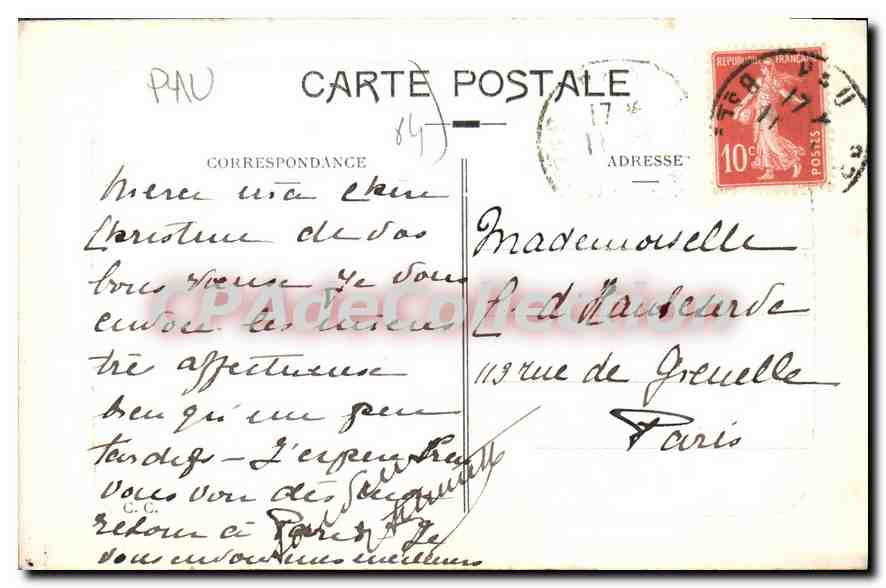 PAU
CARTE POSTALE
64)
CORRESPONDANCE
ADRESSE
REPUBLIQUE FRANÇAISE
10c
POSTES
17
11
PAU
17
11
Merci ma chère
Christine de vos
bons vœux Je vous
envoie les miens
très affectueux
bien qu'un peu
tardifs - J'espère bien
vous voir dès mon
retour à Paris Je
vous envoie mes meilleurs
C. C.
Mademoiselle
C. d'Hauteserve
113 rue de Grenelle
Paris
CPADeCollection